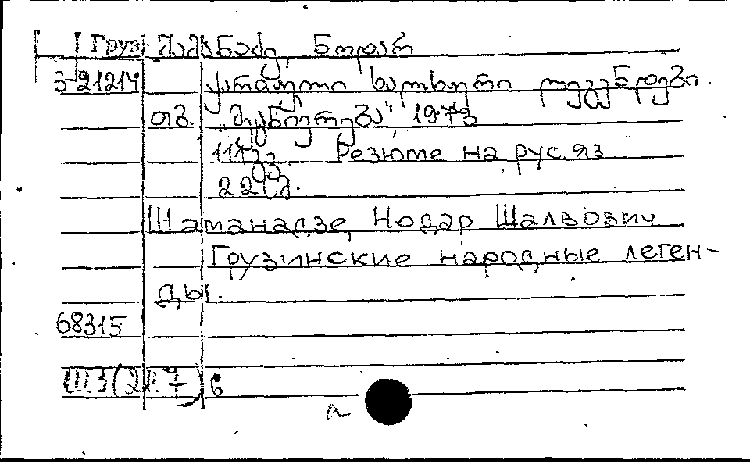 Груз შამანაძე, ნოდარ
3-21214 ქართული ხალხური ლეგენდები.
თბ. „მეცნიერება" 1973
117 გვ. Резюме на рус. яз
22 სმ.
Шаманадзе, Нодар Шалвович
Грузинские народные леген-
ды.
68315
Ш3(2П.7)6